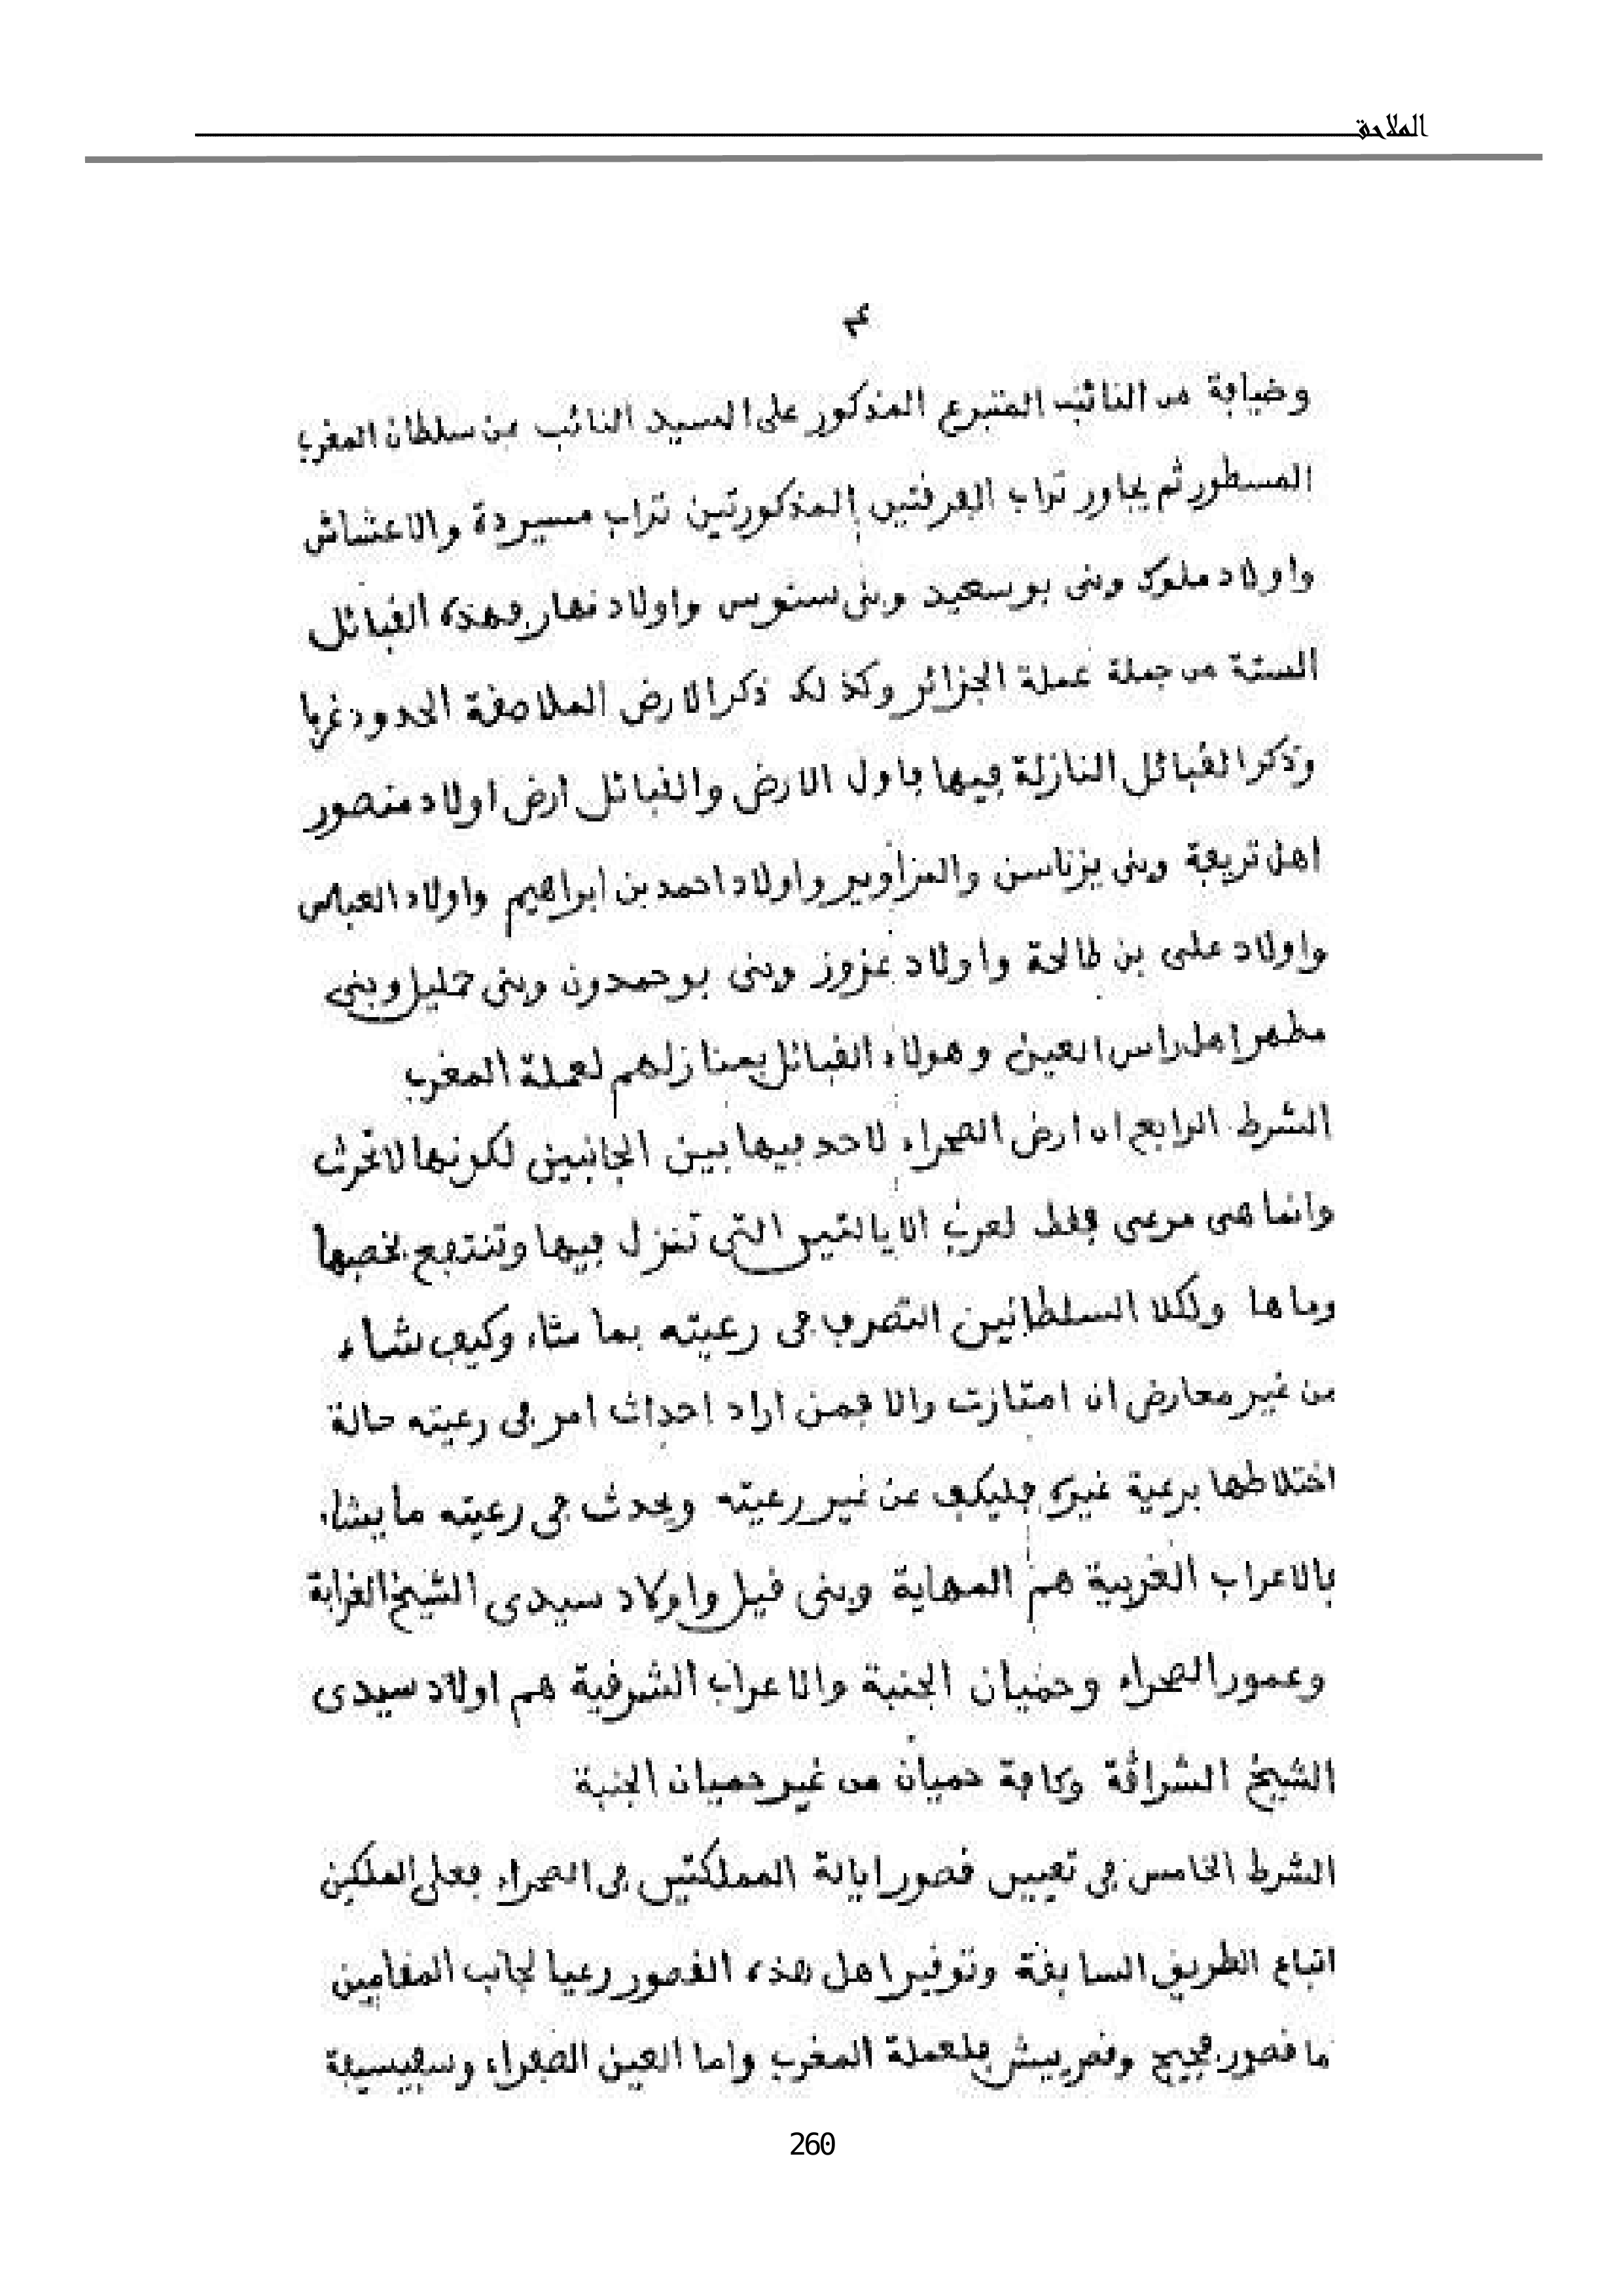 الملاحق
وضيافة من النائب المتبرع المذكور على السيد النائب من سلطان المغرب
المسطور ثم يجاور تراب الفرقتين المذكورتين تراب مسيردة والاعشاش
واولاد ملوك وبنى بوسعيد وبنى سنوس واولاد نهار فهذه القبائل
الستة من جملة عملة الجزائر وكذلك ذكر الارض الملاصقة الحدود غربا
وذكر القبائل النازلة فيها فاول الارض والقبائل ارض اولاد منصور
اهل تريفة وبنى يزناسن والمزاوير واولاد احمد بن ابراهيم واولاد العباس
واولاد على بن طالحة واولاد عزوز وبنى بوحمدون وبنى حليل وبنى
مطهر اهل راس العين وهولاء القبائل بمنازلهم لعملة المغرب
الشرط الرابع ان ارض الصحراء لا حد فيها بين الجانبين لكونها لا تحرث
وانما هى مرعى فقط لعرب الايالتين التى تنزل فيها وتنتفع بخصبها
وماها ولكلا السلطانين التصرف فى رعيته بما شاء وكيف شاء
من غير معارض ان امتازت والا فمن اراد احداث امر فى رعيته حالة
اختلاطها برعية غيره فليكف عن غير رعيته ويحدث فى رعيته ما يشاء
فالاعراب الغربية هم المهاية وبنى فيل واولاد سيدى الشيخ الغرابة
وعمور الصحراء وحميان الجنبة والاعراب الشرفية هم اولاد سيدى
الشيخ الشرافة وكافة حميان من غير حميان الجنبة
الشرط الخامس فى تعيين قصور ايالة المملكتين فى الصحراء فعلى الملكين
اتباع الطريق السابقة وتوقير اهل هذه القصور رعيا لجانب المقامين
ما قصور فجيج وقصر ييش فلعملة المغرب واما العين الصفراء وسفيسيفة
260